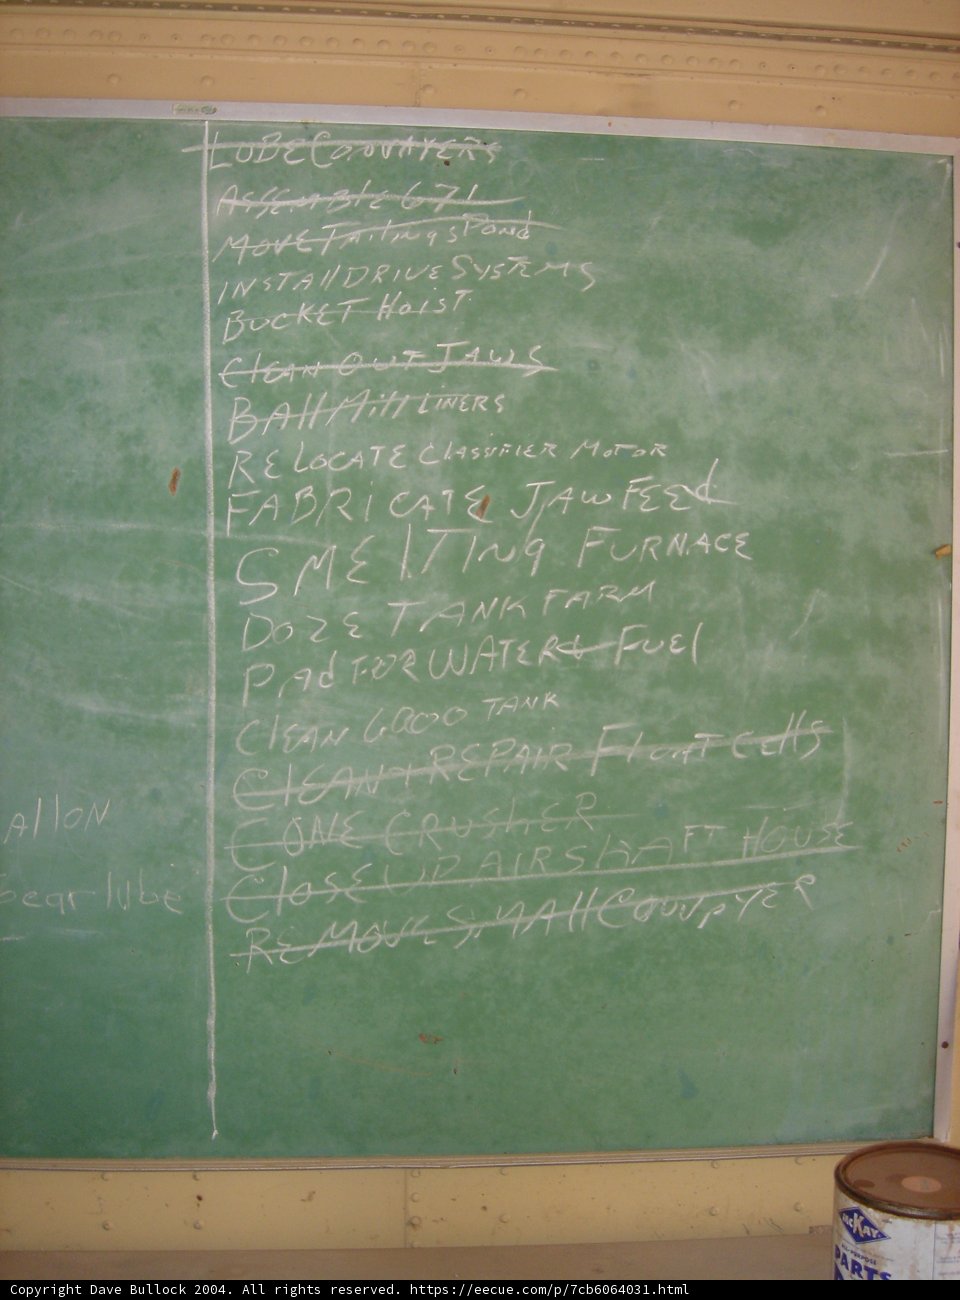 LUBE CONVAYERS
ASSEMBLE 671
MOVE TAILINGS POND
INSTALL DRIVE SYSTEMS
BUCKET HOIST
CLEAN OUT JAWS
BALL MILL LINERS
RELOCATE CLASSIFIER MOTOR
FABRICATE JAW FEEd
SMElTING FURNACE
DOZE TANK FARM
PAd FOR WATER & FUEl
ClEAN 6000 TANK
ClEAN + REPAIR FLOAT CEllS
CONE CRUSHER
ClOSE UP AIRSHAFT HOUSE
REMOVE SMAll CONVAYER
AllON
gear lube
McKAY
ALL-PURPOSE
PARTS
Copyright Dave Bullock 2004. All rights reserved. https://eecue.com/p/7cb6064031.html